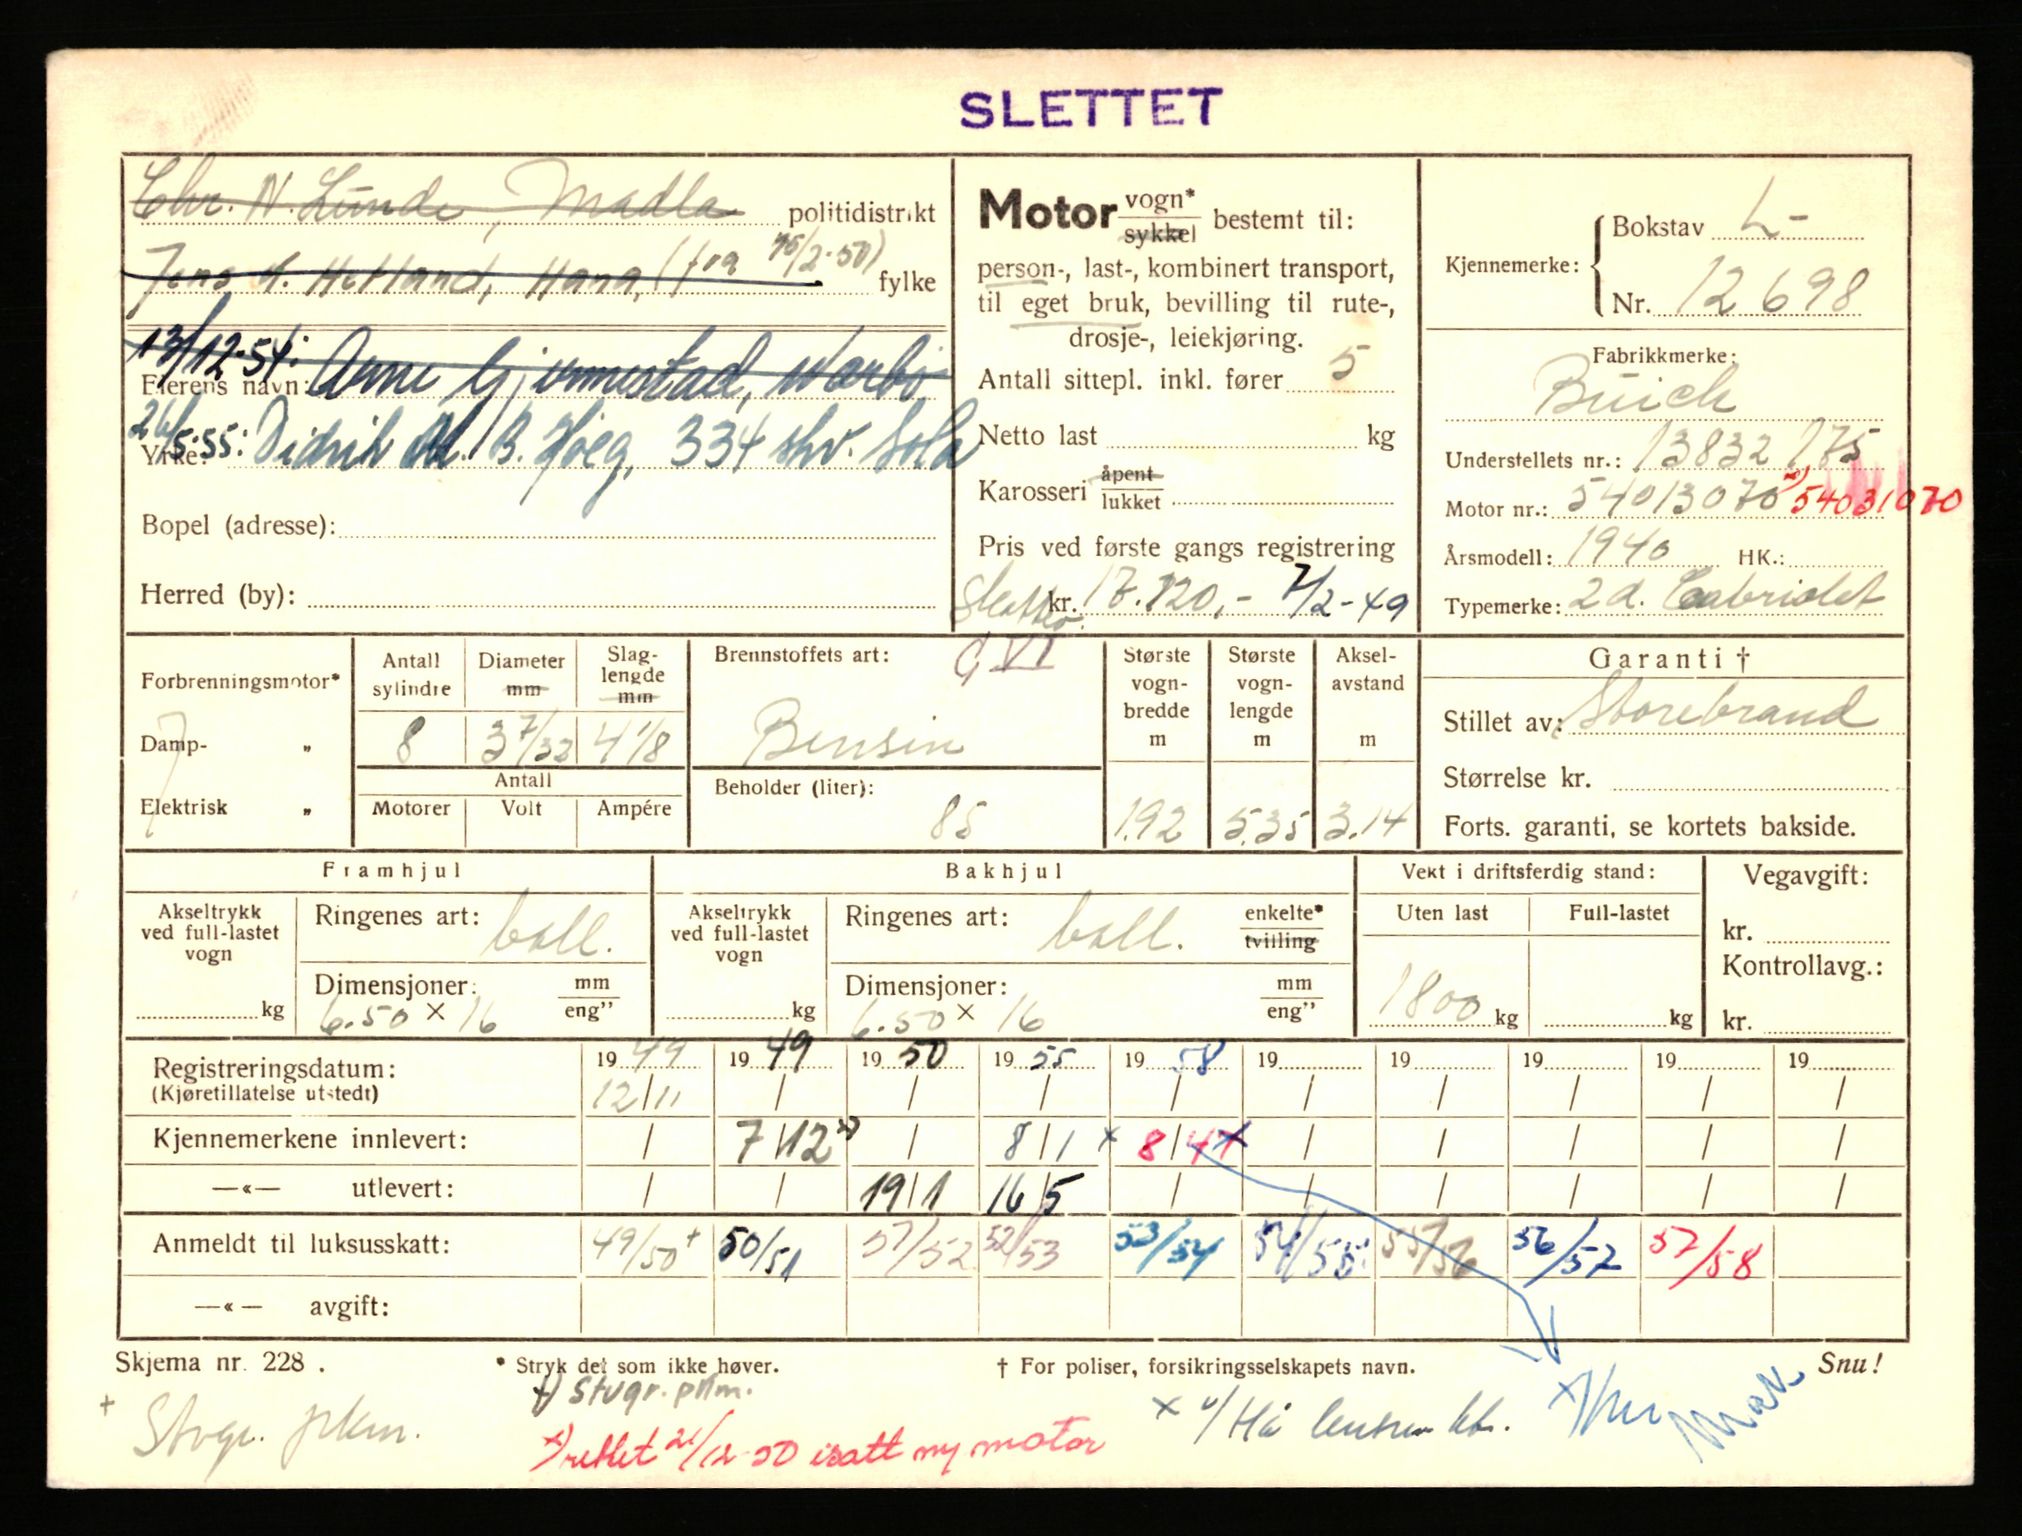 SLETTET
Chr. N. Lunde, Madla politidistrikt
Jens A. Hetland, Hana, (fra 15/2-50) fylke
13/12-54: Arne Gjermestad, Nærbø
Eierens navn:
26/5-55: Didrik M. B. Høeg, 334 skv. Sola
Yrke:
Bopel (adresse):
Herred (by):
Motor vogn* sykkel bestemt til:
person-, last-, kombinert transport,
til eget bruk, bevilling til rute-,
drosje-, leiekjøring.
Antall sittepl. inkl. fører 5
Netto last kg
Karosseri åpent lukket
Pris ved første gangs registrering
kr. 17.120,- 7/2-49
Kjennemerke: Bokstav L-
Nr. 12698
Fabrikkmerke:
Buick
Understellets nr.: 13832775
Motor nr.: 54013070 x) 54031070
Årsmodell: 1940 HK.:
Typemerke: 2d. Cabriolet
Forbrenningsmotor*
Damp- „
Elektrisk „
Antall sylindre 8
Diameter mm 3 7/32
Slaglengde mm 4 1/8
Antall
Motorer Volt Ampére
Brennstoffets art: G VI
Bensin
Beholder (liter):
85
Største vogn-bredde m 1.92
Største vogn-lengde m 5.35
Aksel-avstand m 3.14
Garanti †
Stillet av: Storebrand
Størrelse kr.
Forts. garanti, se kortets bakside.
Framhjul
Akseltrykk ved full-lastet vogn kg
Ringenes art: ball.
Dimensjoner: mm eng”
6.50 × 16
Bakhjul
Akseltrykk ved full-lastet vogn kg
Ringenes art: ball. enkelte* tvilling
Dimensjoner: mm eng”
6.50 × 16
Vekt i driftsferdig stand:
Uten last Full-lastet
1800 kg kg
Vegavgift:
kr.
Kontrollavg.:
kr.
Registreringsdatum: 19 49 19 49 19 50 19 55 19 58 19 19 19 19 19
(Kjøretillatelse utstedt) 12/11 / / / / / / / / /
Kjennemerkene innlevert: / 7/12 / 8/1 x 8/4 x / / / / /
—«— utlevert: / / 19/1 16/5 / / / / / /
Anmeldt til luksusskatt: 49/50+ 50/51 51/52 52/53 53/54 54/55 55/56 56/57 57/58
—«— avgift:
Skjema nr. 228 .
* Stryk det som ikke høver.
† For poliser, forsikringsselskapets navn.
Snu!
+ Stvgr. pkm.
Stvgr. pkm.
x) rettet 21/12-50 isatt ny motor
x v/ Hå lensm. ktr.